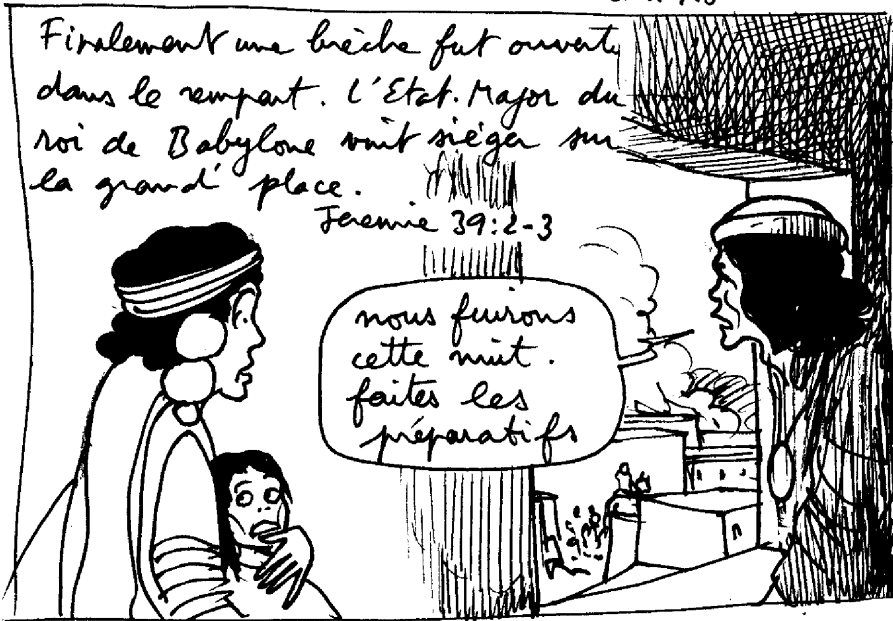 Finalement une brèche fut ouverte
dans le rempart. L'Etat.Major du
roi de Babylone vint siéger sur
la grand' place.
Jeremie 39:2-3
nous fuirons
cette nuit.
faites les
préparatifs